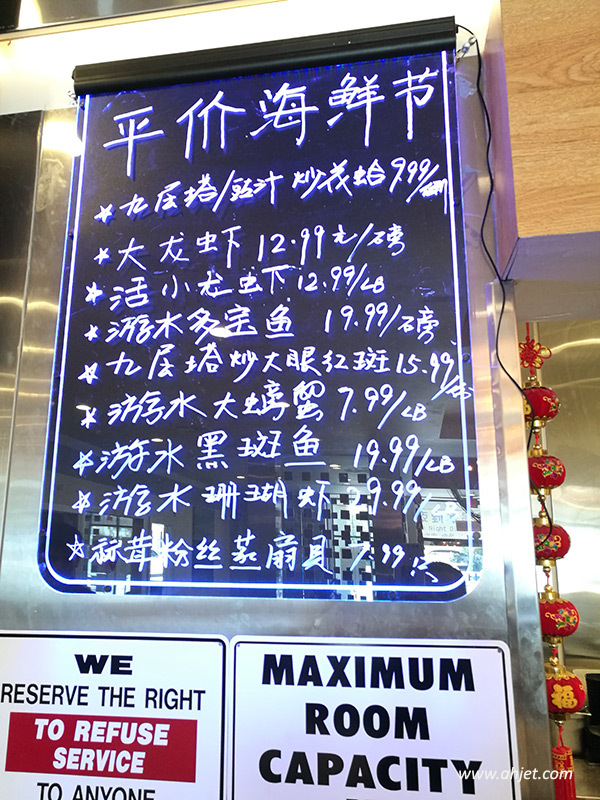 平价海鲜节
☆ 九层塔/豉汁 炒花蛤 9.99/
☆ 大龙虾 12.99元/磅
☆ 活小龙虾 12.99/LB
☆ 游水多宝鱼 19.99/磅
☆ 九层塔炒大眼红斑 15.99/
☆ 游水大螃蟹 7.99/LB
☆ 游水黑斑鱼 19.99/LB
☆ 游水珊瑚虾 29.99/LB
☆ 蒜茸粉丝蒸扇贝 7.99/只
WE
RESERVE THE RIGHT
TO REFUSE
SERVICE
TO ANYONE
MAXIMUM
ROOM
CAPACITY
福
www.ahjet.com